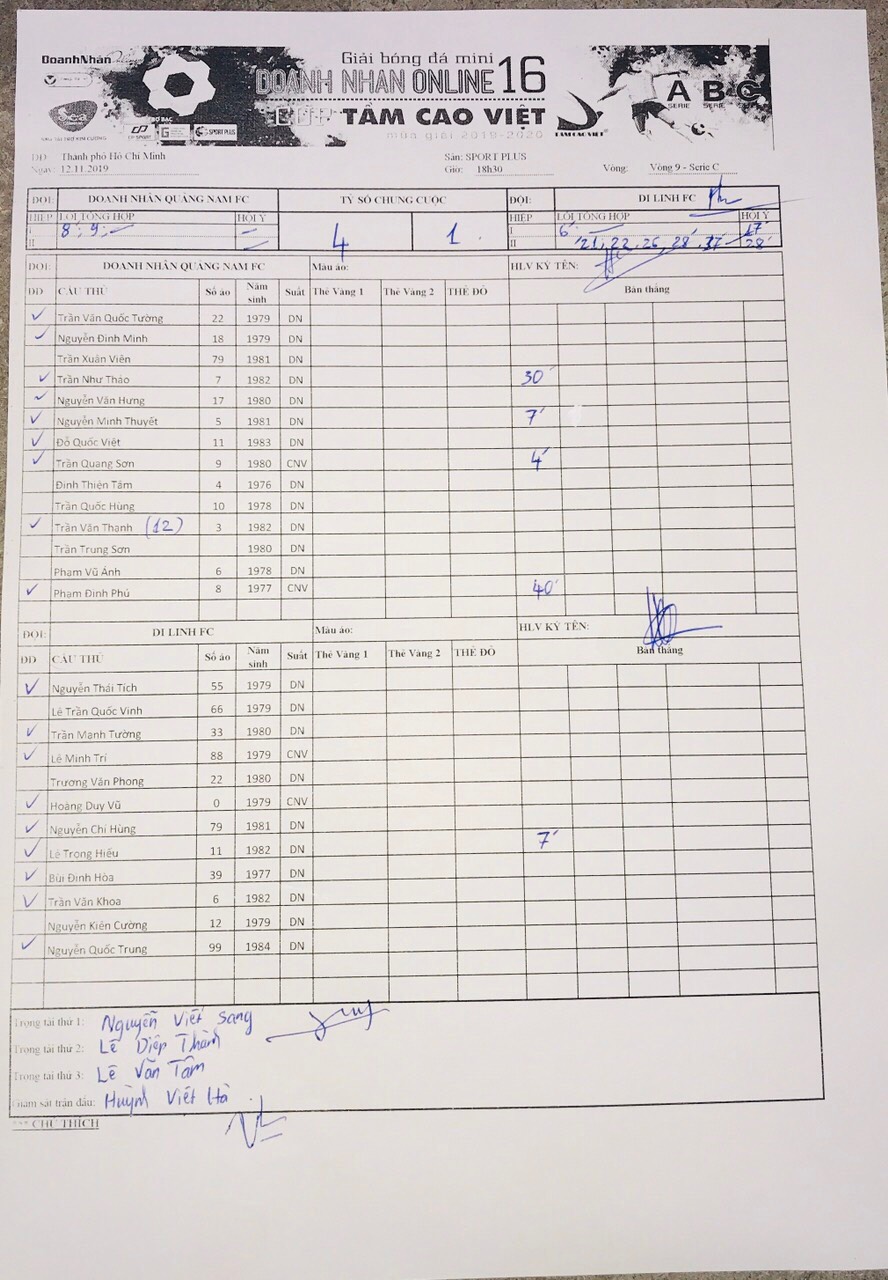 DoanhNhân
Giải bóng đá mini
DOANH NHAN ONLINE 16
TẦM CAO VIỆT
mùa giải 2019-2020
A B C
SERIE SERIE SERIE
SPORT PLUS
TẦM CAO VIỆT
DD Thành phố Hồ Chí Minh Sân: SPORT PLUS
Ngày: 12.11.2019 Giờ: 18h30 Vòng: Vòng 9 - Serie C
ĐỘI: DOANH NHÂN QUẢNG NAM FC TỶ SỐ CHUNG CUỘC ĐỘI: DI LINH FC
HIỆP LỖI TỔNG HỢP HỘI Ý HIỆP LỖI TỔNG HỢP HỘI Ý
I 8; 9; I 6' 17'
II 4 1 II 21, 22, 26, 28', 37' 28'
ĐỘI: DOANH NHÂN QUẢNG NAM FC Màu áo: HLV KÝ TÊN:
DD CẦU THỦ Số áo Năm sinh Suất Thẻ Vàng 1 Thẻ Vàng 2 THẺ ĐỎ Bàn thắng
✓ Trần Văn Quốc Tường 22 1979 DN
✓ Nguyễn Đình Minh 18 1979 DN
Trần Xuân Viên 79 1981 DN
✓ Trần Như Thảo 7 1982 DN 30'
✓ Nguyễn Văn Hưng 17 1980 DN
✓ Nguyễn Minh Thuyết 5 1981 DN 7'
✓ Đỗ Quốc Việt 11 1983 DN
✓ Trần Quang Sơn 9 1980 CNV 4'
Đinh Thiện Tâm 4 1976 DN
Trần Quốc Hùng 10 1978 DN
✓ Trần Văn Thạnh (12) 3 1982 DN
Trần Trung Sơn 1980 DN
Phạm Vũ Ánh 6 1978 DN
✓ Phạm Đình Phú 8 1977 CNV 40'
ĐỘI: DI LINH FC Màu áo: HLV KÝ TÊN:
DD CẦU THỦ Số áo Năm sinh Suất Thẻ Vàng 1 Thẻ Vàng 2 THẺ ĐỎ Bàn thắng
✓ Nguyễn Thái Tích 55 1979 DN
Lê Trần Quốc Vinh 66 1979 DN
✓ Trần Mạnh Tường 33 1980 DN
✓ Lê Minh Trí 88 1979 CNV
Trương Văn Phong 22 1980 DN
✓ Hoàng Duy Vũ 0 1979 CNV
✓ Nguyễn Chí Hùng 79 1981 DN
✓ Lê Trọng Hiếu 11 1982 DN 7'
✓ Bùi Đình Hòa 39 1977 DN
✓ Trần Văn Khoa 6 1982 DN
Nguyễn Kiên Cường 12 1979 DN
✓ Nguyễn Quốc Trung 99 1984 DN
Trọng tài thứ 1: Nguyễn Viết Sang
Trọng tài thứ 2: Lê Diệp Thành
Trọng tài thứ 3: Lê Văn Tâm
Giám sát trận đấu: Huỳnh Viết Hà
*** CHÚ THÍCH